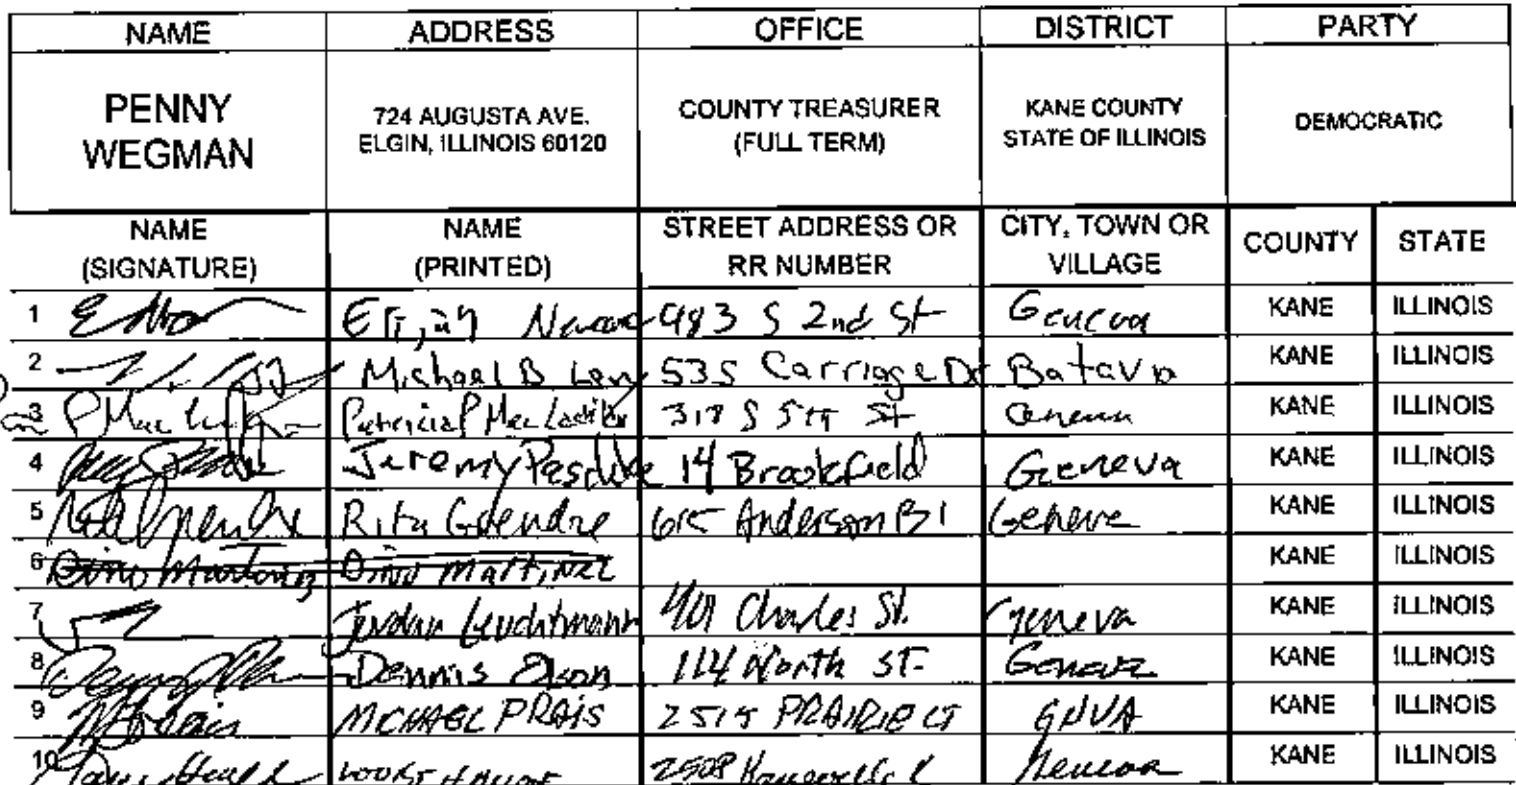 NAME ADDRESS OFFICE DISTRICT PARTY
PENNY WEGMAN 724 AUGUSTA AVE. ELGIN, ILLINOIS 60120 COUNTY TREASURER (FULL TERM) KANE COUNTY STATE OF ILLINOIS DEMOCRATIC
NAME (SIGNATURE) NAME (PRINTED) STREET ADDRESS OR RR NUMBER CITY, TOWN OR VILLAGE COUNTY STATE
1 483 S 2nd St Geneva KANE ILLINOIS
2 Michael B Levy 535 Carriage Dr Batavia KANE ILLINOIS
3 Patricia P 318 S 5th St Geneva KANE ILLINOIS
4 Jeremy 14 Brookfield Geneva KANE ILLINOIS
5 Rita Anderson Bl Geneva KANE ILLINOIS
6 Dino Martinez Dino Martinez KANE ILLINOIS
7 Jordan Leuchtmann 401 Charles St. Geneva KANE ILLINOIS
8 Dennis Olson 114 North St. Geneva KANE ILLINOIS
9 MICHAEL PRAIS 2515 PRAIRIE CT GNVA KANE ILLINOIS
10 2508 Geneva KANE ILLINOIS